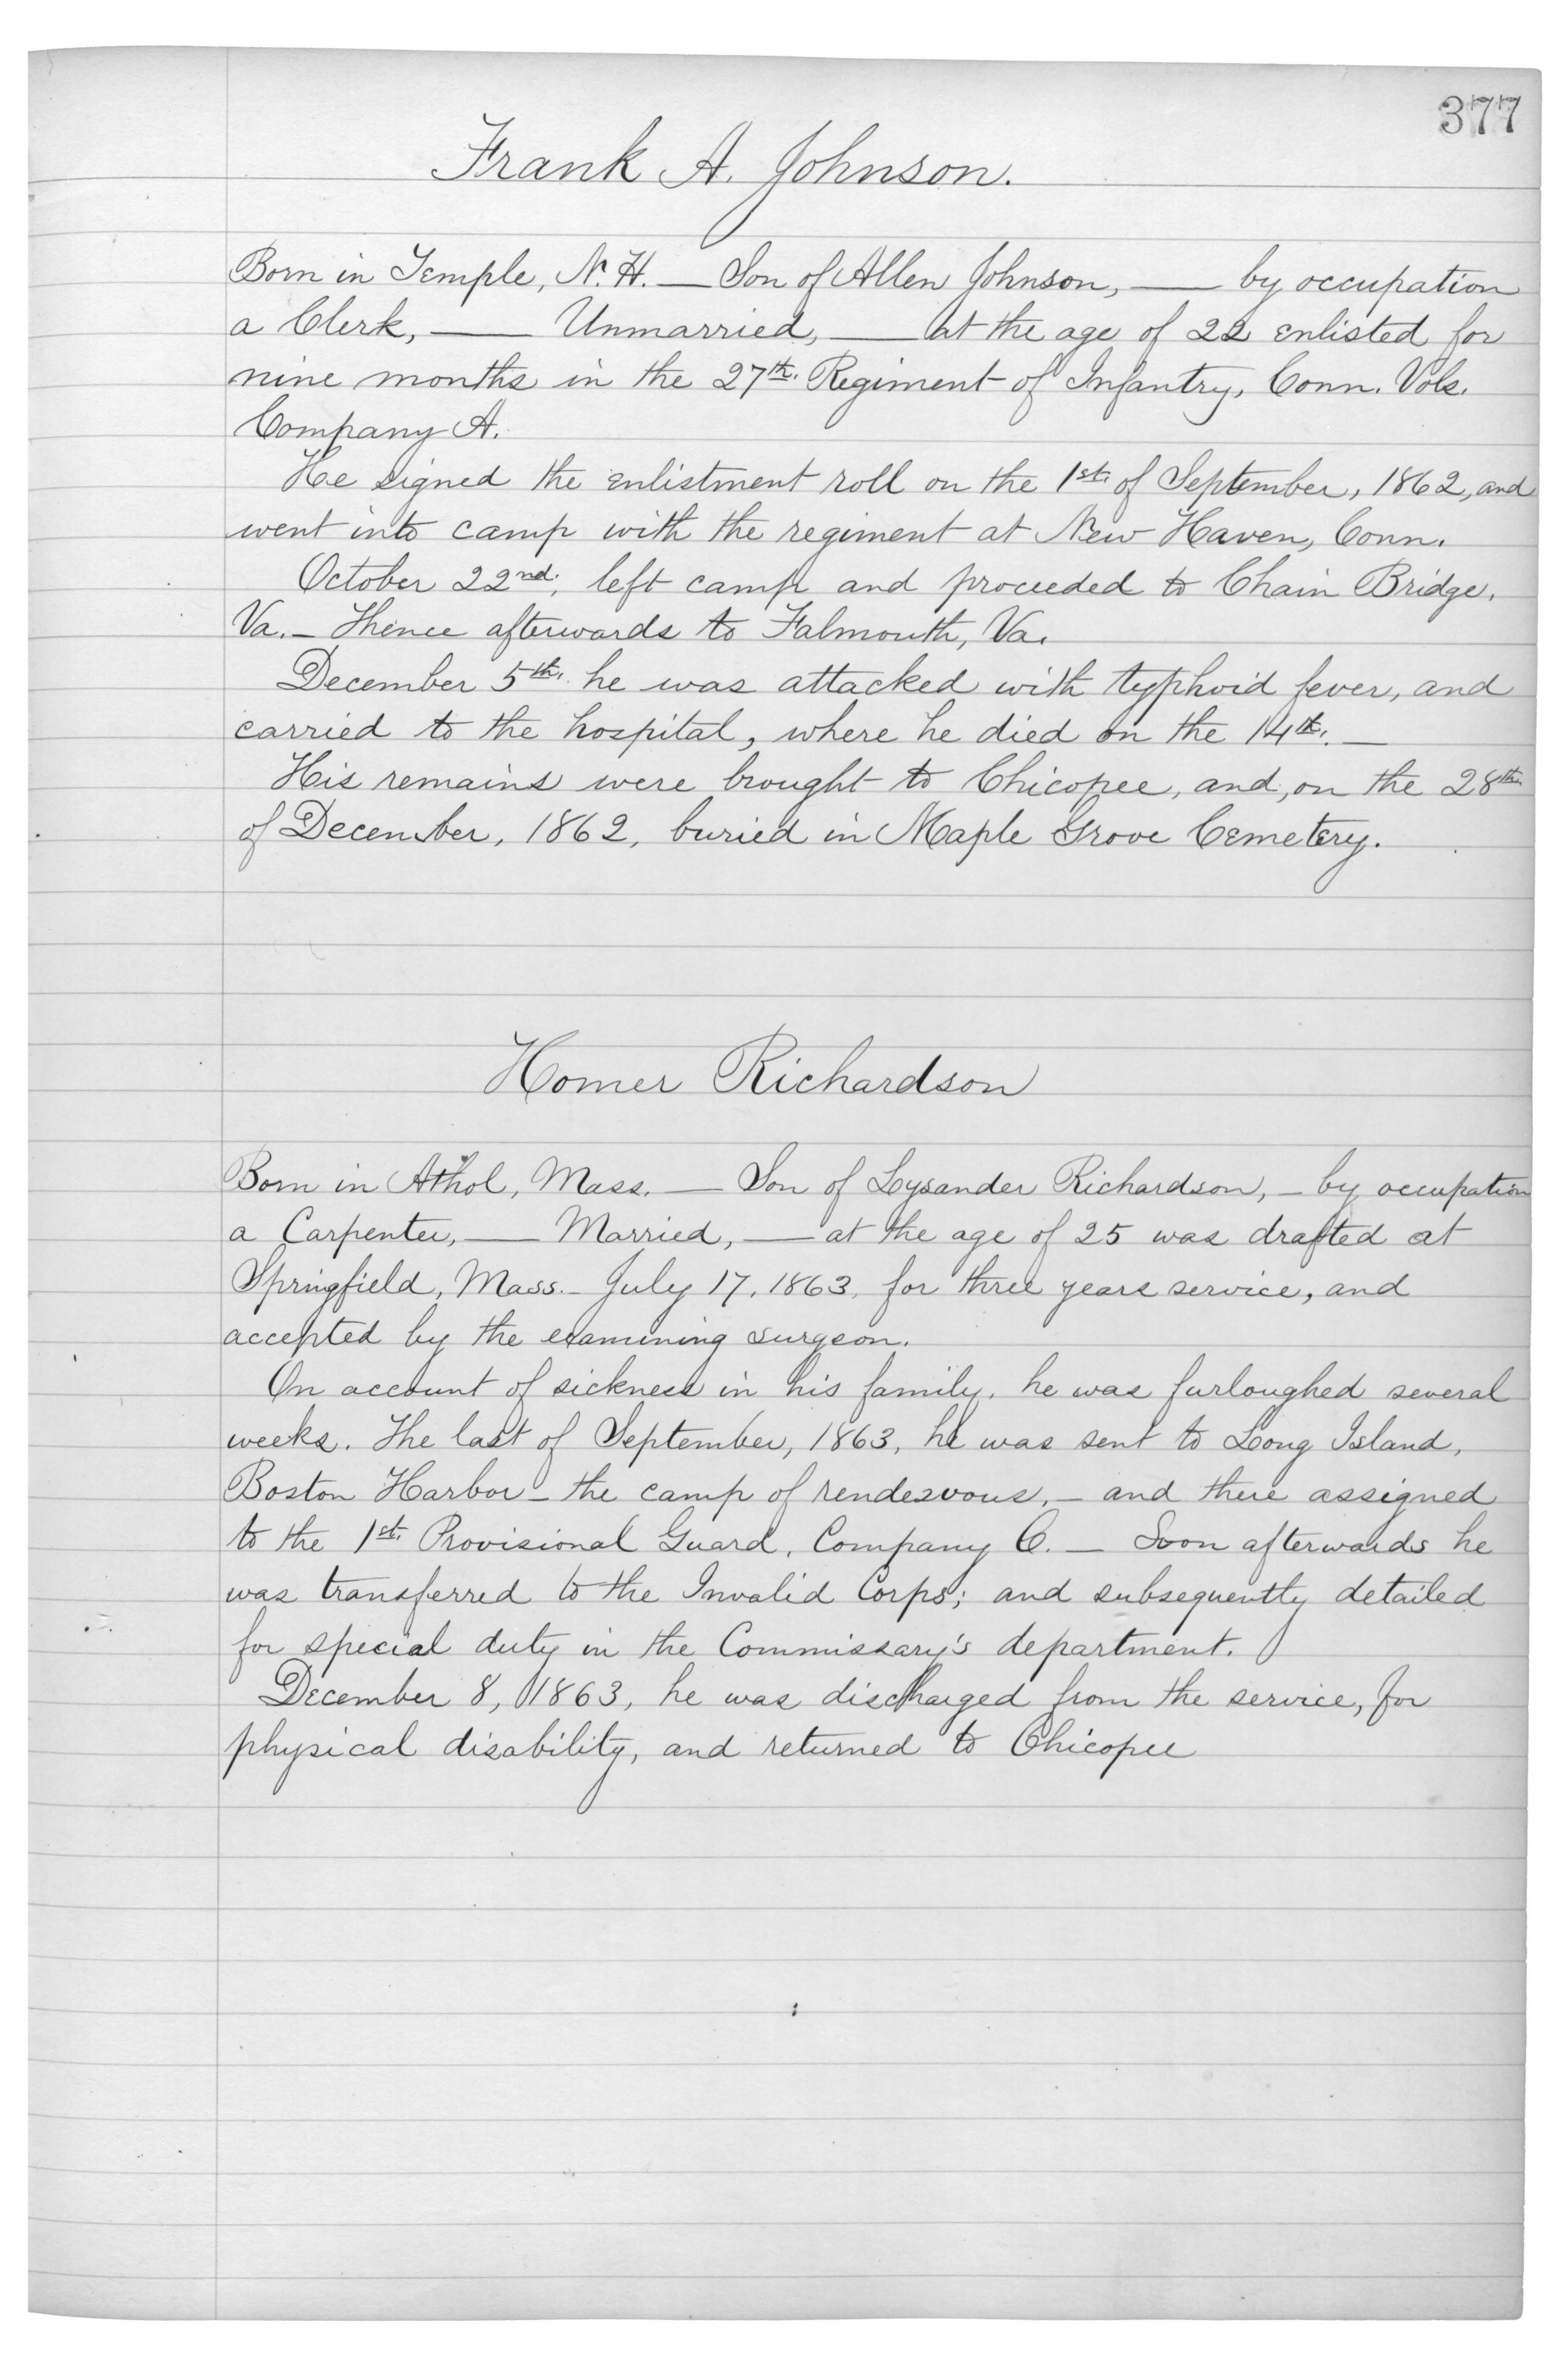 377
Frank A. Johnson.
Born in Temple, N. H. — Son of Allen Johnson, — by occupation
a Clerk, — Unmarried, — at the age of 22 enlisted for
nine months in the 27th. Regiment of Infantry, Conn. Vols.
Company A.
He signed the enlistment roll on the 1st. of September, 1862, and
went into camp with the regiment at New Haven, Conn.
October 22nd, left camp and proceeded to Chain Bridge,
Va. — Thence afterwards to Falmouth, Va.
December 5th. he was attacked with typhoid fever, and
carried to the hospital, where he died on the 14th. —
His remains were brought to Chicopee, and, on the 28th
of December, 1862, buried in Maple Grove Cemetery.
Homer Richardson
Born in Athol, Mass. — Son of Lysander Richardson, — by occupation
a Carpenter, — Married, — at the age of 25 was drafted at
Springfield, Mass. — July 17, 1863, for three years service, and
accepted by the examining surgeon.
On account of sickness in his family, he was furloughed several
weeks. The last of September, 1863, he was sent to Long Island,
Boston Harbor — the camp of rendezvous, — and there assigned
to the 1st. Provisional Guard, Company C. — Soon afterwards he
was transferred to the Invalid Corps; and subsequently detailed
for special duty in the Commissary's department.
December 8, 1863, he was discharged from the service, for
physical disability, and returned to Chicopee